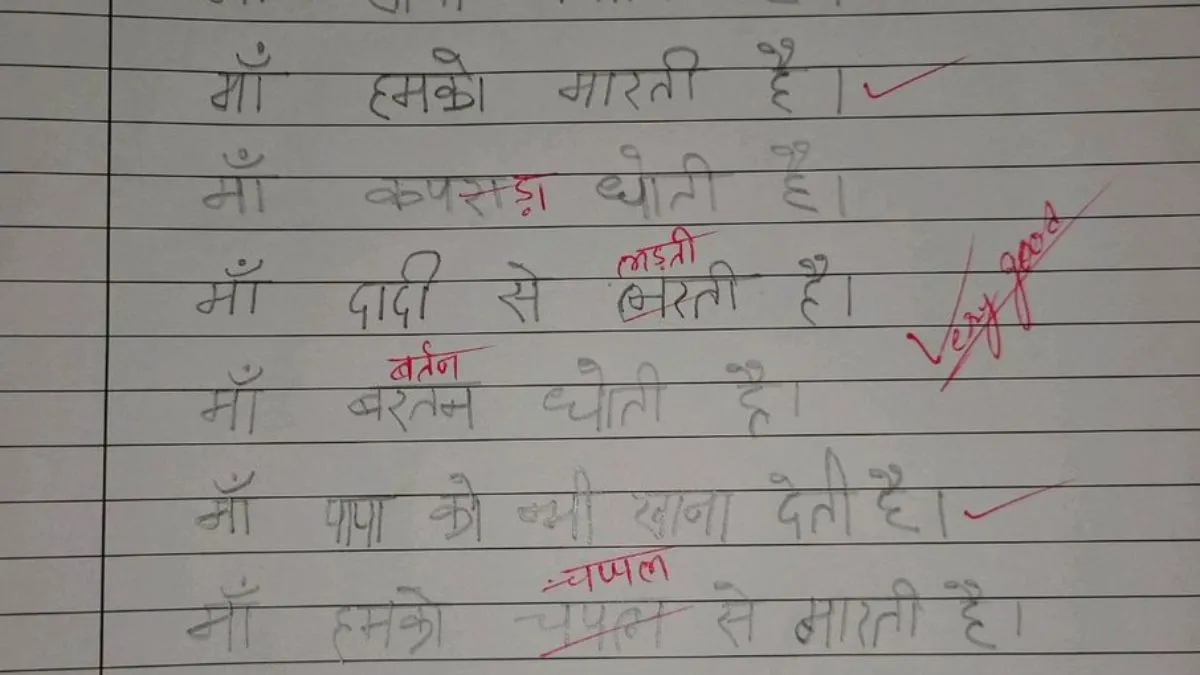 माँ हमको मारती है।
माँ कपसड़ा धोती है।
लड़ती
माँ दादी से लरती है। Very good
बर्तन
माँ बरतन धोती है।
माँ पापा को भी खाना देती है।
चप्पल
माँ हमको चपल से मारती है।